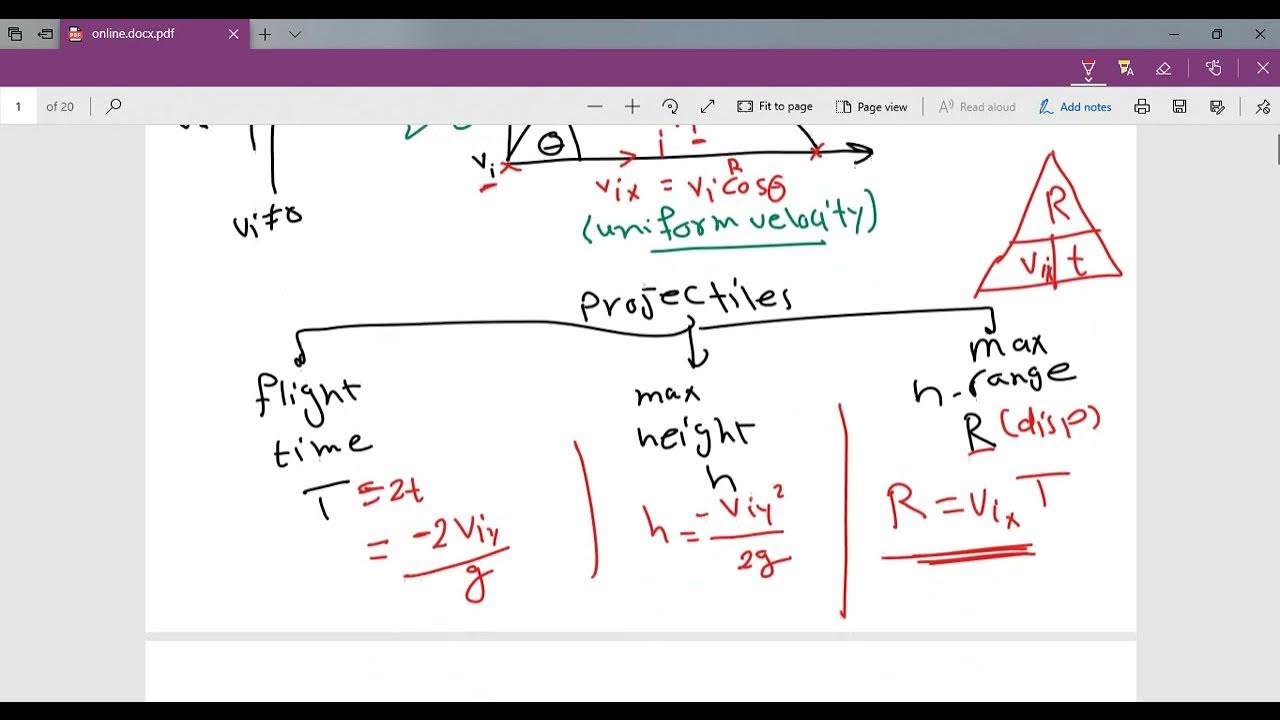 online.docx.pdf
1 of 20
Fit to page
Page view
Read aloud
Add notes
θ
vi
vix = vi cosθ
R
(uniform velocity)
vi≠0
R
vix t
Projectiles
flight
time
T = 2t
= -2viy / g
max
height
h
h = -viy² / 2g
max
h-range
R (disp)
R = vix T